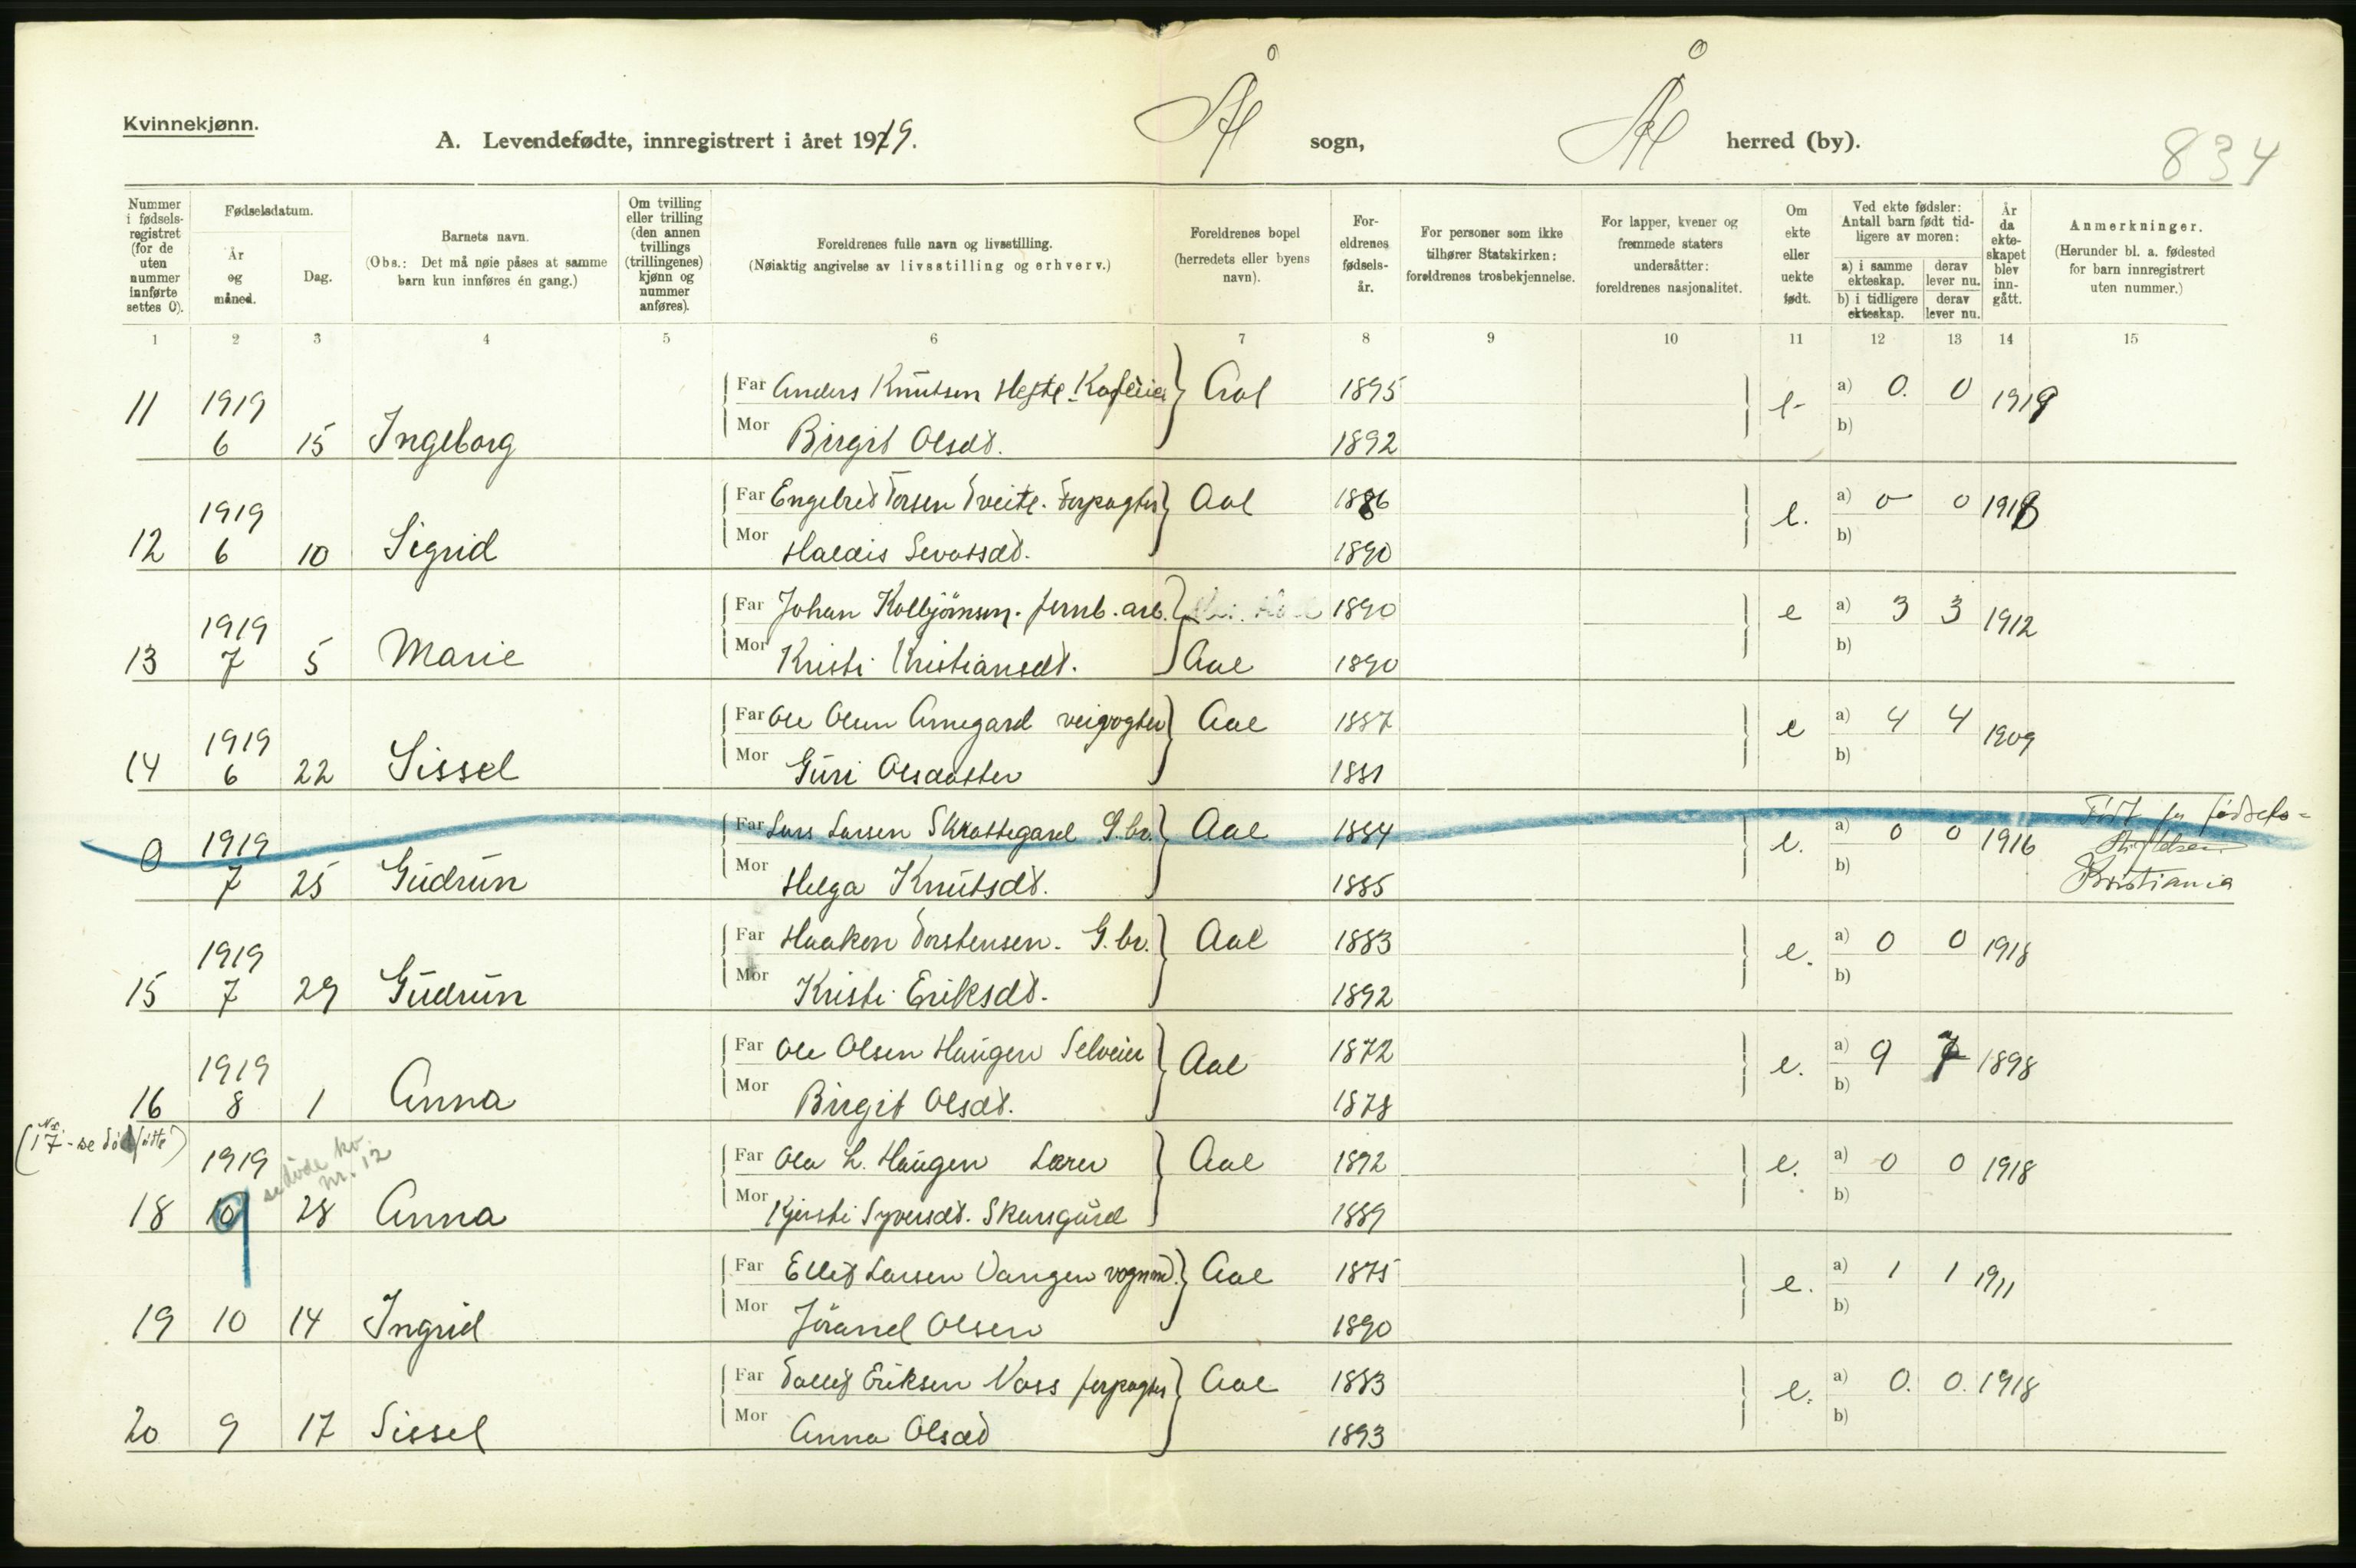 Kvinnekjønn.
A. Levendefødte, innregistrert i året 1919. Ål sogn, Ål herred (by).
834
Nummer i fødselsregistret (for de uten nummer innførte settes 0).
Fødselsdatum.
År og måned.
Dag.
Barnets navn.
(Obs.: Det må nøie påses at samme barn kun innføres én gang.)
Om tvilling eller trilling (den annen tvillings (trillingenes) kjønn og nummer anføres).
Foreldrenes fulle navn og livsstilling.
(Nøiaktig angivelse av livsstilling og erhverv.)
Foreldrenes bopel (herredets eller byens navn).
Foreldrenes fødselsår.
For personer som ikke tilhører Statskirken: foreldrenes trosbekjennelse.
For lapper, kvener og fremmede staters undersåtter: foreldrenes nasjonalitet.
Om ekte eller uekte født.
Ved ekte fødsler: Antall barn født tidligere av moren:
a) i samme ekteskap. derav lever nu.
b) i tidligere ekteskap. derav lever nu.
År da ekteskapet blev inngått.
Anmerkninger.
(Herunder bl. a. fødested for barn innregistrert uten nummer.)
1 2 3 4 5 6 7 8 9 10 11 12 13 14 15
1919 Far Anders Knutsen Hefte Aal 1895 a) 0. 0 1919
11 6 15 Ingeborg Mor Birgit Olsdt. 1892 e. b)
1919 Far Engebret Torsen Tveite. Forpagter Aal 1886 a) 0 0 1918
12 6 10 Sigrid Mor Haldis Sevatsdt. 1890 e. b)
1919 Far Johan Kolbjörnsen. jernb. arb. 1890 a) 3 3 1912
13 7 5 Marie Mor Kristi Kristiansdt. Aal 1890 e b)
1919 Far Ole Olsen Arnegard veivogter Aal 1887 a) 4 4 1909
14 6 22 Sissel Mor Guri Olsdatter 1881 e b)
1919 Far Lars Larsen Skrattegard G.br. Aal 1884 a) 0 0 1916 Født på fødsels-
0 7 25 Gudrun Mor Helga Knutsdt. 1885 e. b) stiftelsen
Kristiania
1919 Far Haakon Torstensen. G.br. Aal 1883 a) 0 0 1918
15 7 29 Gudrun Mor Kristi Eriksdt. 1892 e. b)
1919 Far Ole Olsen Haugen Selveier Aal 1872 a) 9 7 1898
16 8 1 Anna Mor Birgit Olsdt. 1878 e. b)
(Nr. 17 - se dødfødte)
se døde kv. nr. 12
1919 Far Ola L. Haugen Lærer Aal 1892 a) 0 0 1918
18 9 28 Anna Mor Kjersti Syversdt. Skarsgård 1889 e. b)
Far Ellef Larsen Vangen vognm. Aal 1875 a) 1 1 1911
19 10 14 Ingrid Mor Jörand Olsen 1890 e. b)
Far Tollef Eriksen Noss forpagter Aal 1883 a) 0. 0. 1918
20 9 17 Sissel Mor Anna Olsdt 1893 e. b)